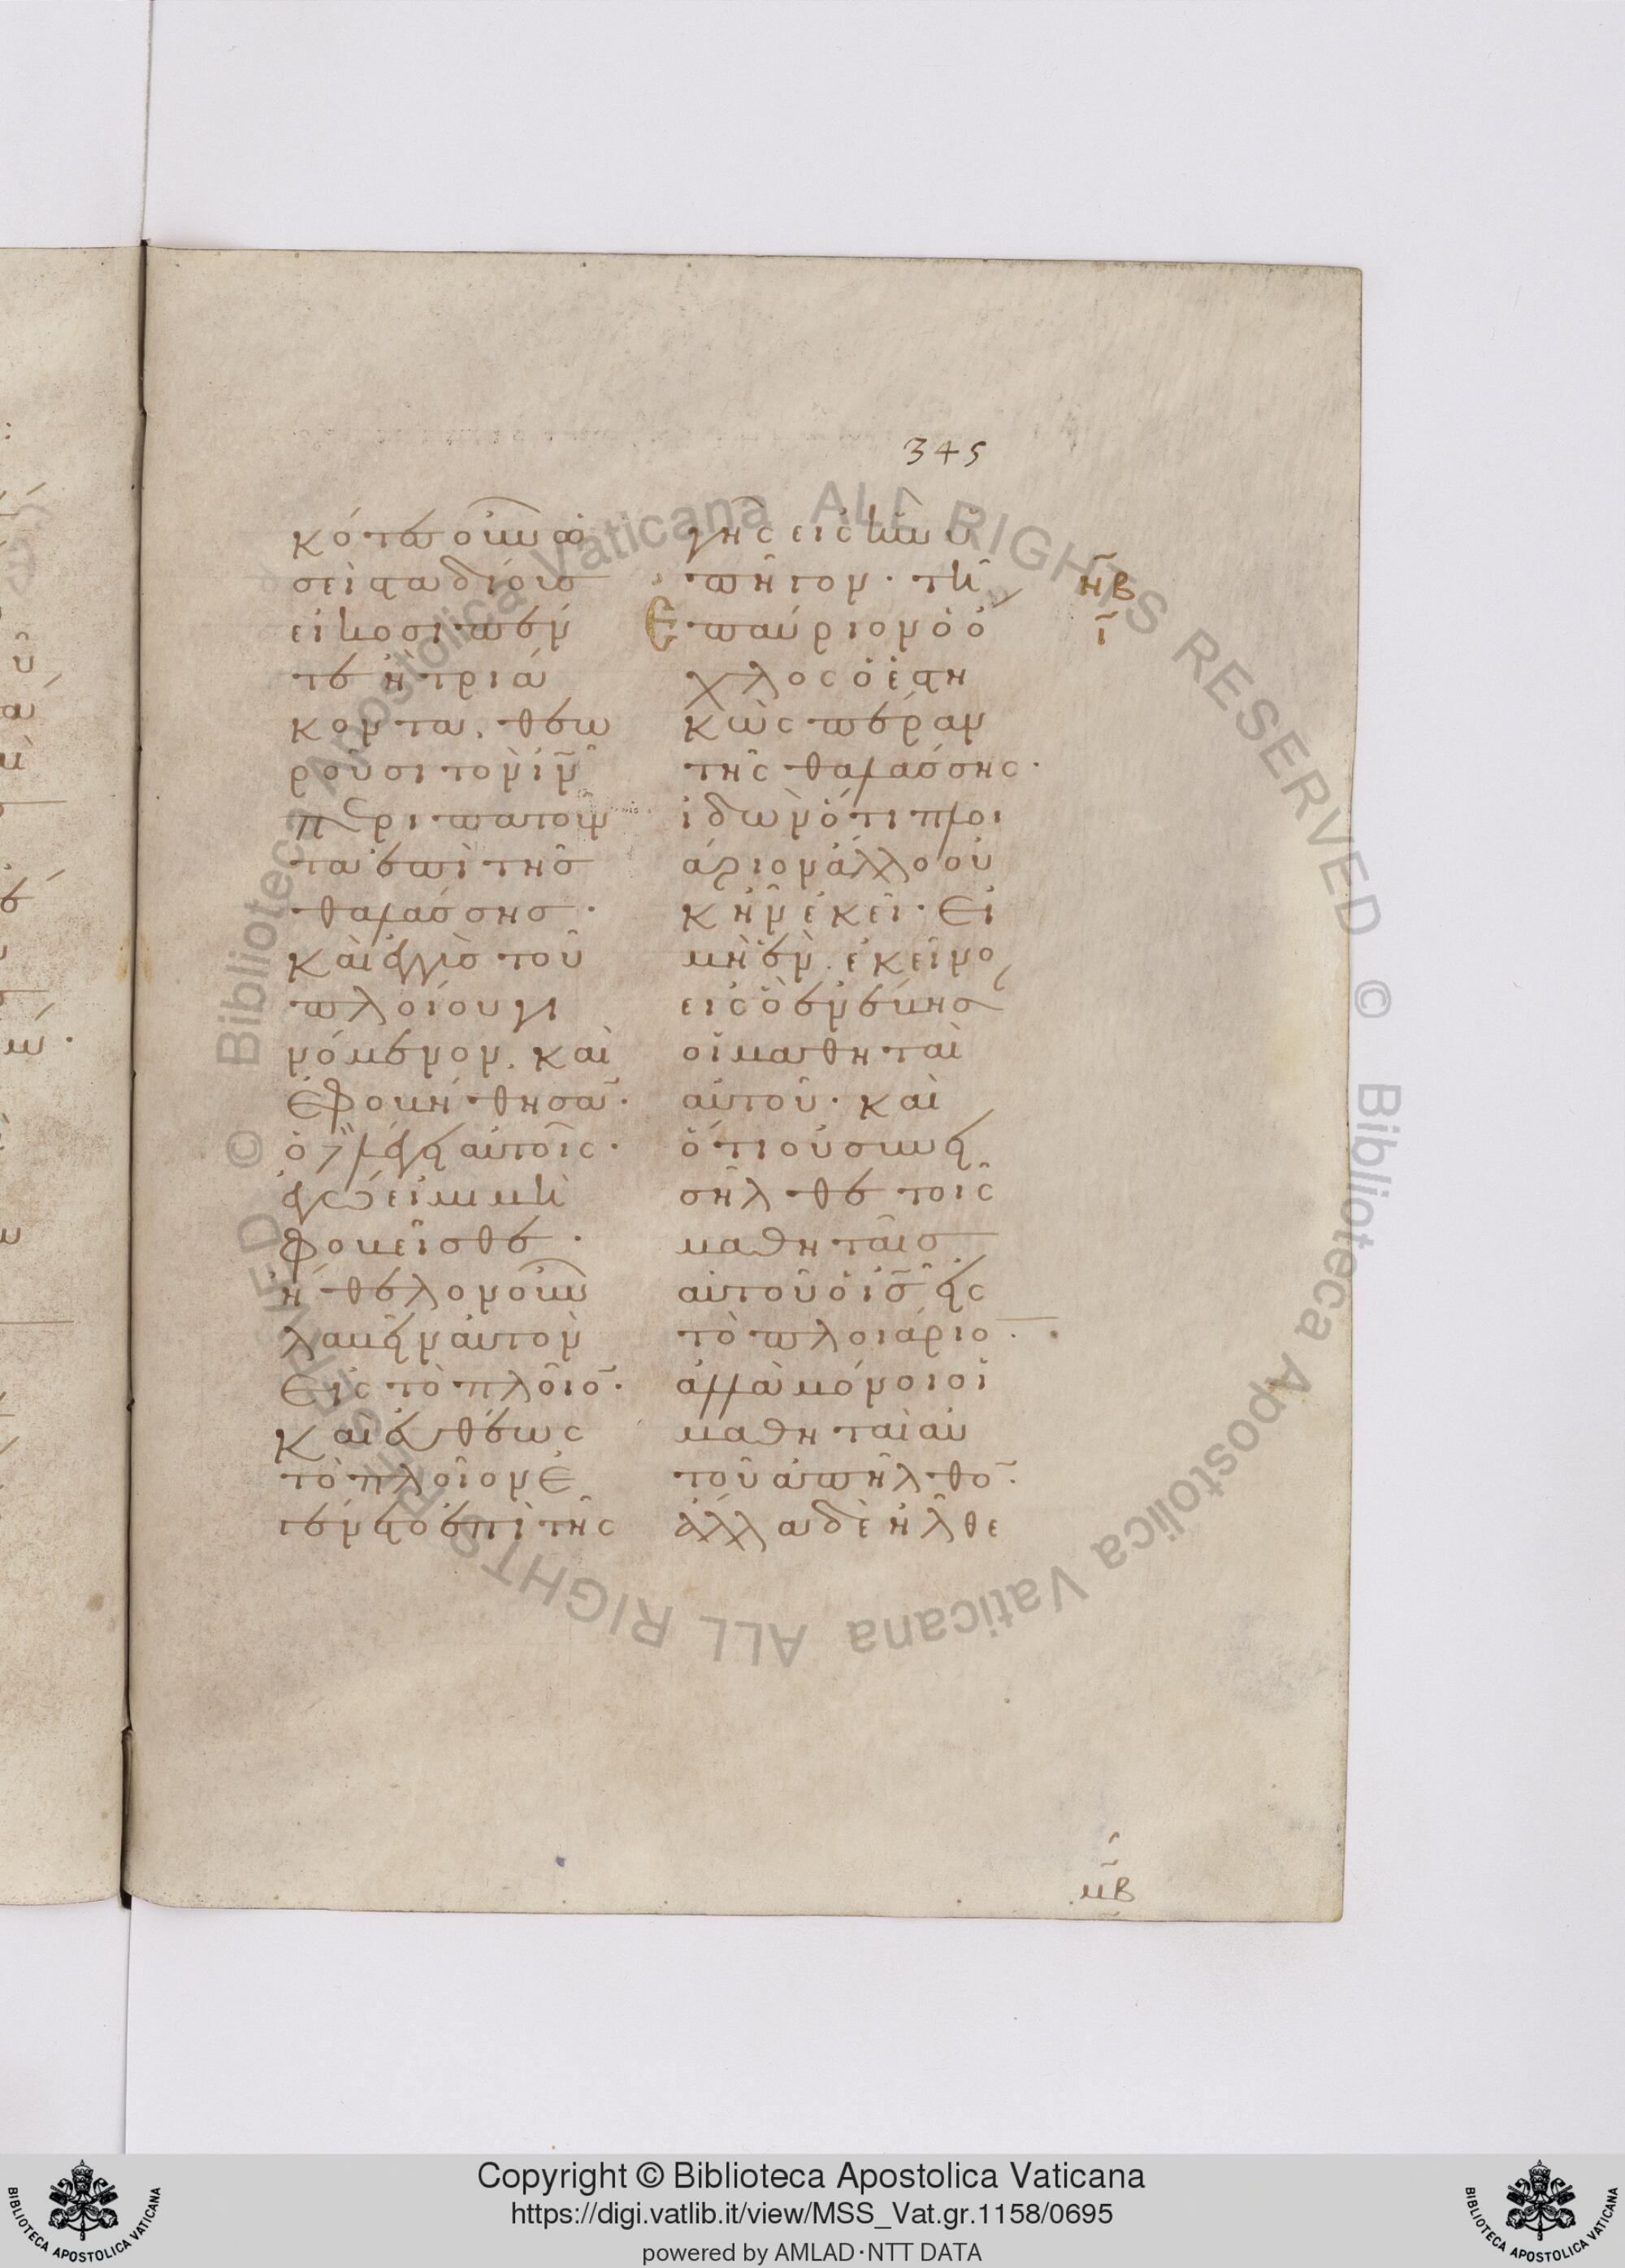 345
κότες οὖν ὡ
σεὶ σταδίους
εἰκοσιπέν
τε ἢ τριά
κοντα, θεω
ροῦσι τὸν ἰ̅ν̅
περιπατοῦν
τα ἐπὶ τῆς
θαλάσσης·
καὶ ἐγγὺς τοῦ
πλοίου γι
νόμενον, καὶ
ἐφοβήθησα̅·
ὁ δὲ λέγει αὐτοῖς·
ἐγώ εἰμι μὴ
φοβεῖσθε·
ἤθελον οὖν
λαβεῖν αὐτὸν
εἰς τὸ πλοῖο̅·
καὶ εὐθέως
τὸ πλοῖον ἐ
γένετο ἐπὶ τῆς
γῆς εἰς ἣν ὑ
πῆγον· τῇ
ἐπαύριον ὁ ὄ
χλος ὁ ἑστη
κὼς πέραν
τῆς θαλάσσης·
ἰδὼν ὅτι πλοι
άριον ἄλλο οὐ
κ ἦν ἐκεῖ· εἰ
μὴ ἓν ἐκεῖνο
εἰς ὃ ἐνέβησαν
οἱ μαθηταὶ
αὐτοῦ· καὶ
ὅτι οὐ συνει
σῆλθε τοῖς
μαθηταῖς
αὐτοῦ ὁ ι̅ς̅ εἰς
τὸ πλοιάριο̅·
ἀλλὰ μόνοι οἱ
μαθηταὶ αὐ
τοῦ ἀπῆλθο̅·
ἄλλα δὲ ἦλθε
ν̅β̅
ι̅
μ̅β̅
ALL RIGHTS RESERVED © Biblioteca Apostolica Vaticana
Copyright © Biblioteca Apostolica Vaticana
https://digi.vatlib.it/view/MSS_Vat.gr.1158/0695
powered by AMLAD·NTT DATA
BIBLIOTECA APOSTOLICA VATICANA
BIBLIOTECA APOSTOLICA VATICANA